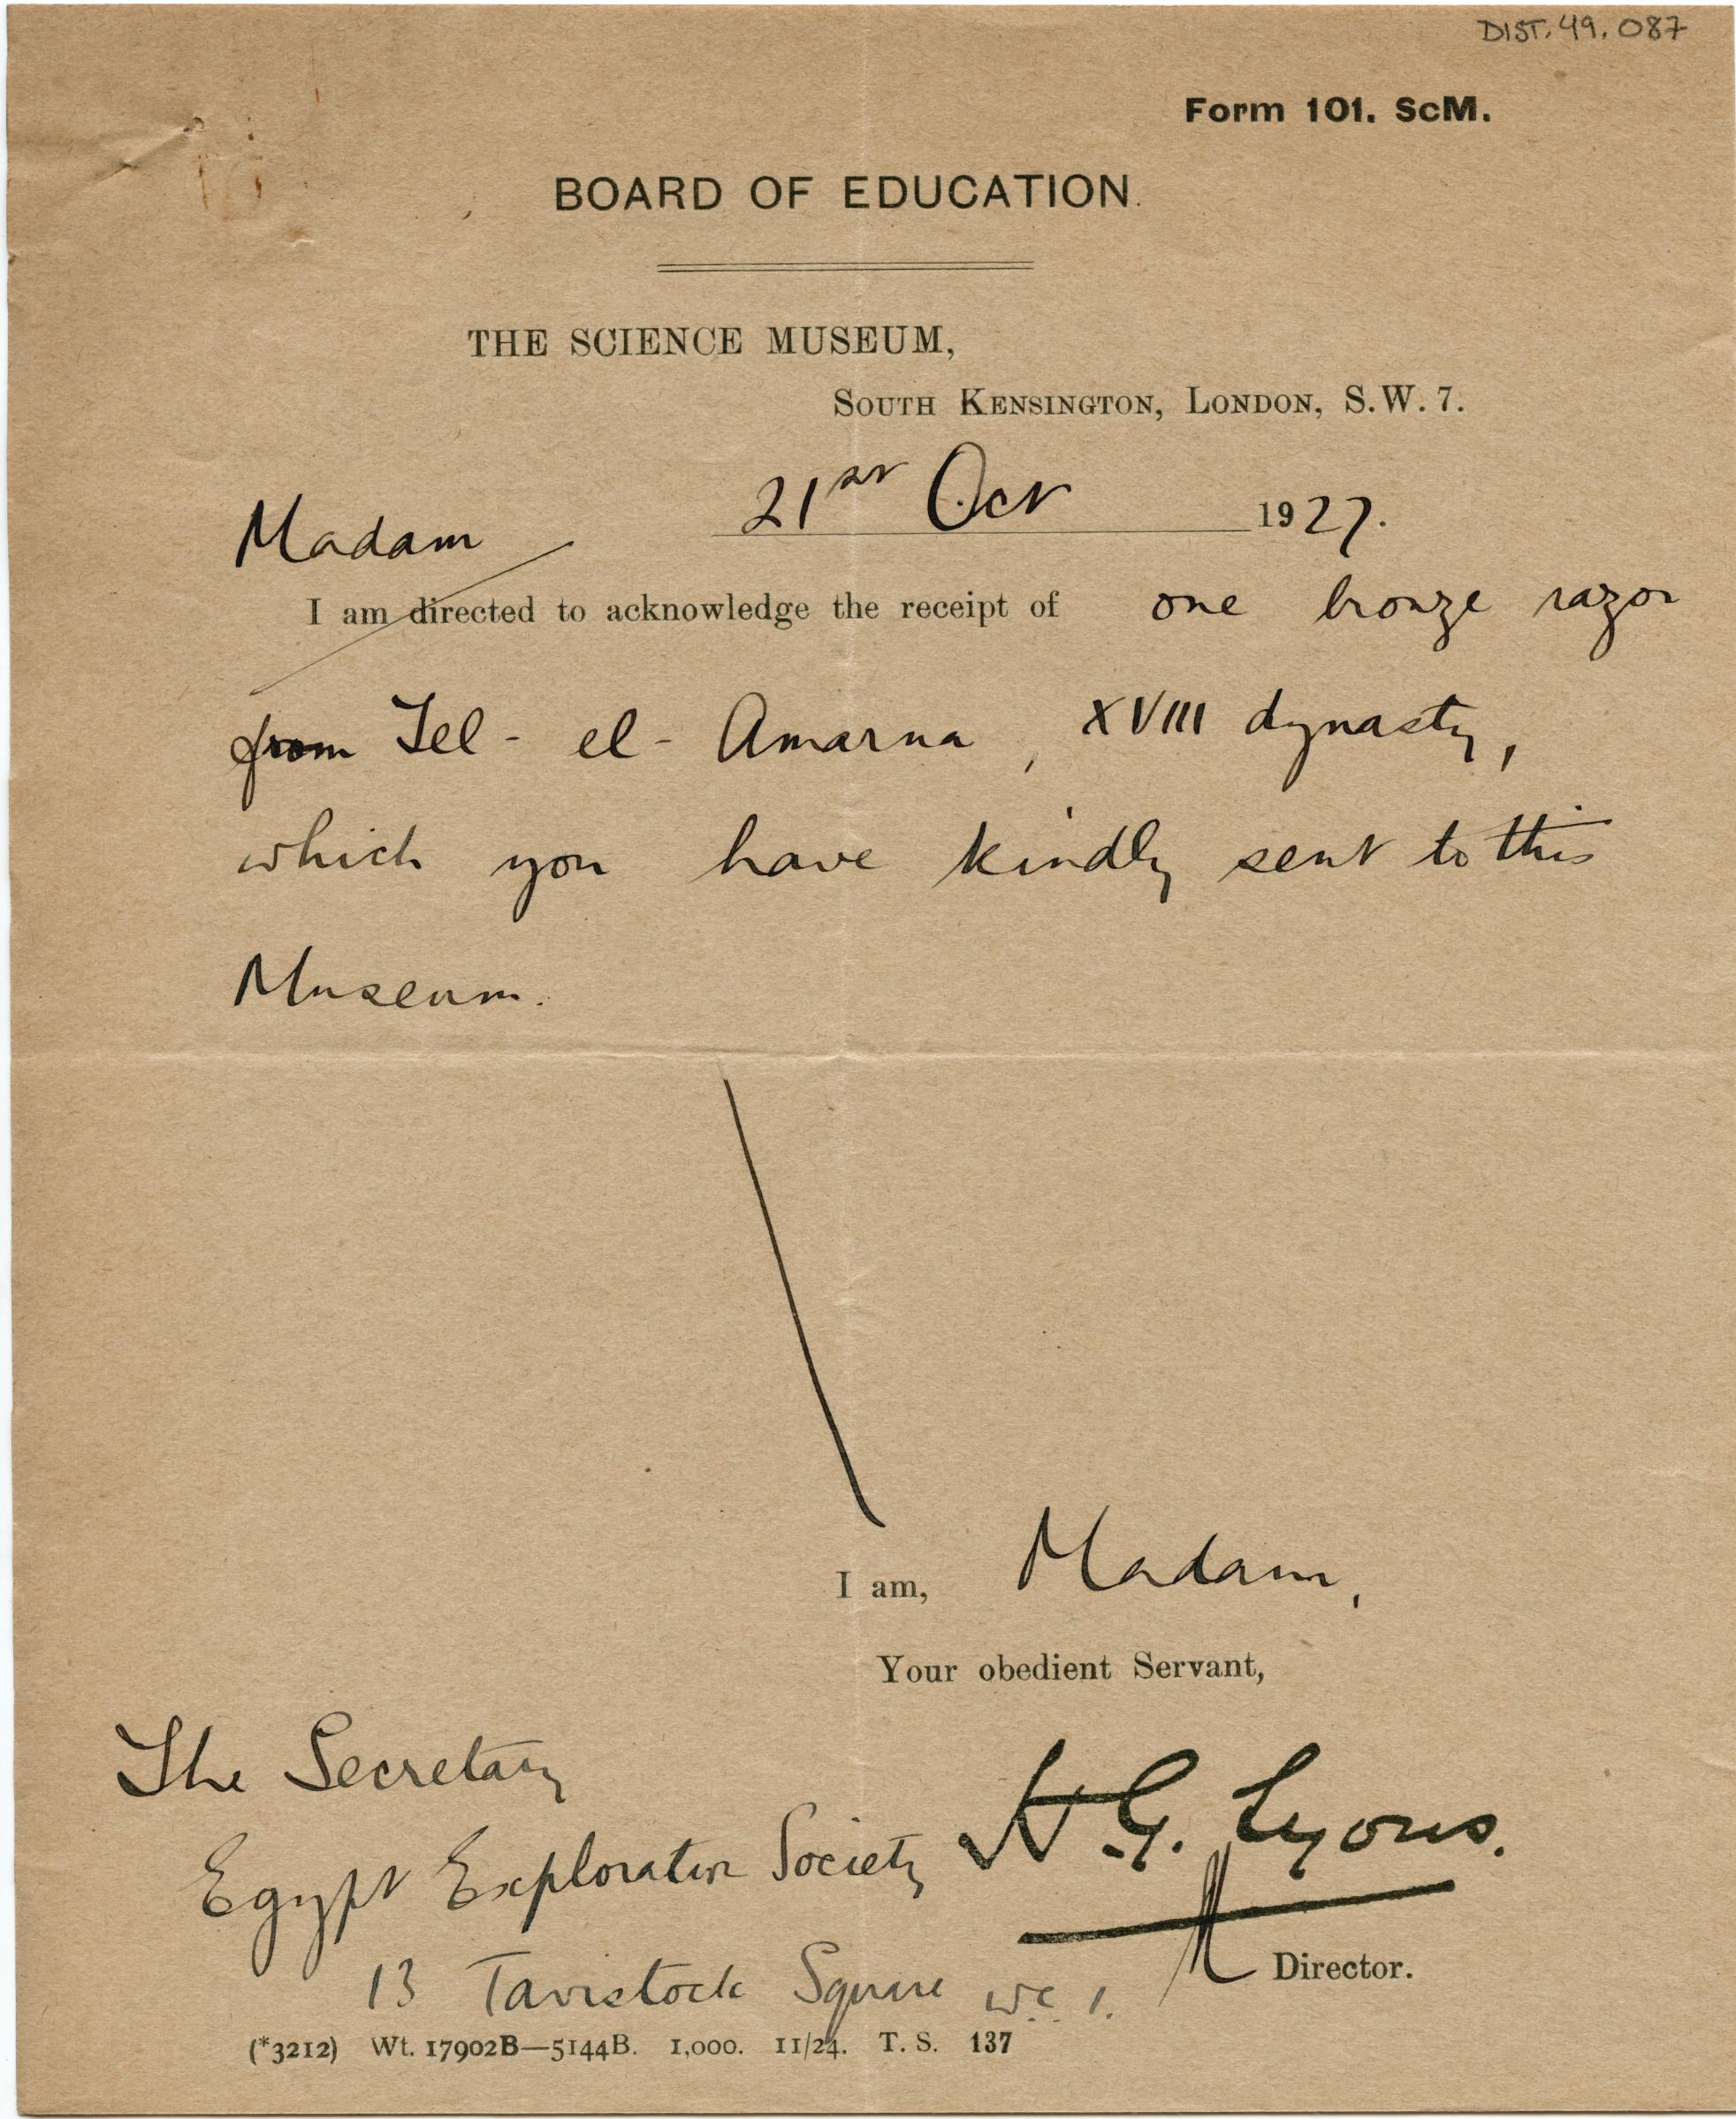 DIST. 49. 087
Form 101. ScM.
BOARD OF EDUCATION.
THE SCIENCE MUSEUM,
SOUTH KENSINGTON, LONDON, S.W. 7.
21st Oct 1927.
Madam
I am directed to acknowledge the receipt of one bronze razor
from Tel-el-Amarna, XVIII dynasty,
which you have kindly sent to this
Museum.
I am, Madam,
Your obedient Servant,
H G. Lyons.
Director.
The Secretary
Egypt Exploration Society
13 Tavistock Square WC 1.
(*3212) Wt. 17902B—5144B. 1,000. 11/24. T. S. 137